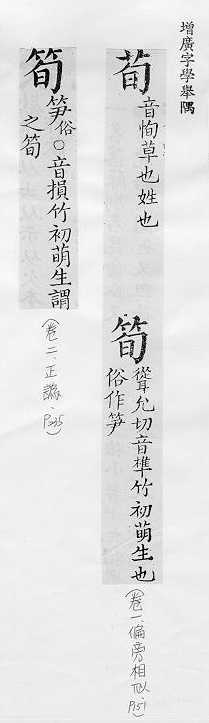 增廣字學舉隅
荀 音恂草也姓也
筍 聳允切音準竹初萌生也
俗作笋
(卷一、偏旁相似、P.51)
筍 笋俗○音損竹初萌生謂
之筍
(卷二、正譌、P235)